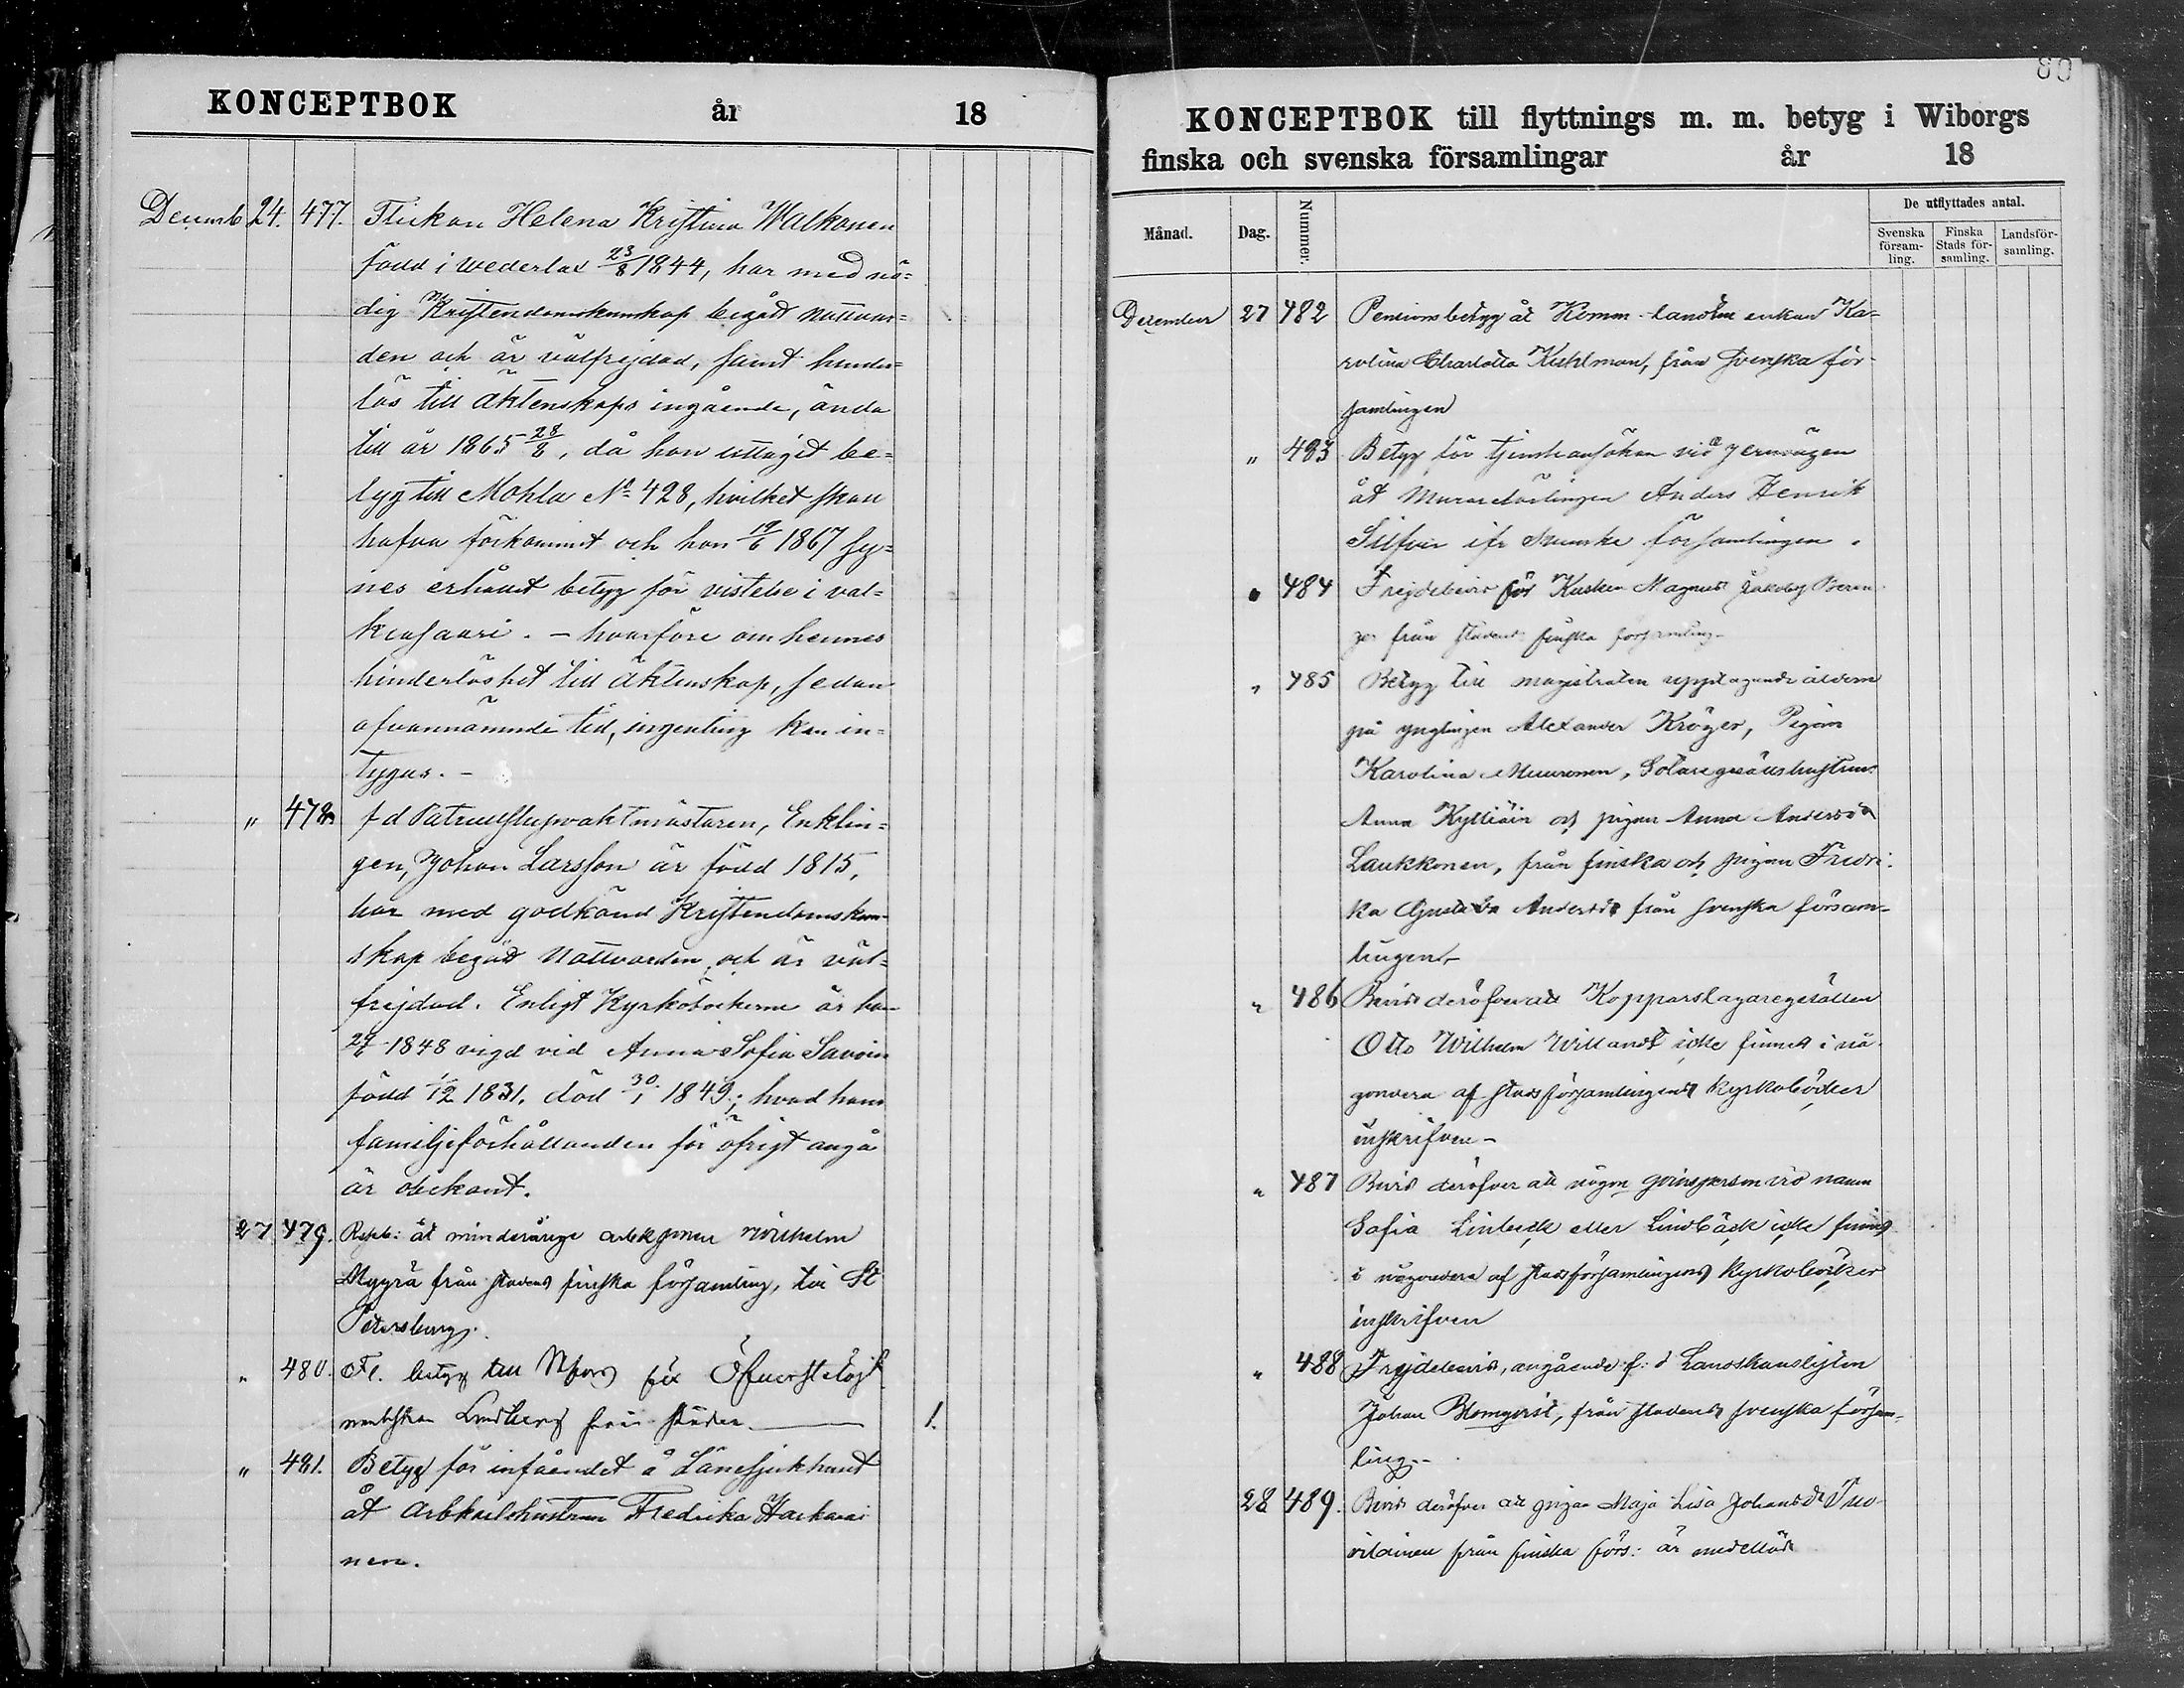 KONCEPTBOK år 18
Decemb 24. 477. Flickan Helena Kristina Walkonen
född i Wederlax 23/8 1844, har med nö=
dig Kristendomskunskap begått nattvar=
den och är välfrejdad, samt hinder=
lös till äktenskaps ingående, ända
till år 1865 28/8, då hon uttagit be=
tyg till Mohla No 428, hvilket skall
hafva förkommit och hon 19/6 1867 sy=
nes erhållit betyg för vistelse i Val=
keasaari. – hvarföre om hennes
hinderlöshet till äktenskap, sedan
ofvannämnde tid, ingenting kan in=
tygas. –
" 478. f d vaktmästaren, Enklin=
gen, Johan Larsson är född 1815,
har med godkänd Kristendomskun-
skap begått Nattvarden och är väl=
frejdad. Enligt Kyrkoböckerne är han
29/6 1848 vigd vid Anna Sofia Savoin
född 1/12 1831. död 30/1 1849; hvad hans
familjeförhållanden för öfrigt angå
är obekant.
27 479. åt minderårige Wilhelm
Myyrä från stadens finska församling, till St
Petersburg.
" 480. Fl. betyg till Hfors för
Lindberg från staden — 1.
" 481. Betyg för infåendet å Länesjukhuset
åt arbkarlshustrun Fredrika Harkarai
nen.
80
KONCEPTBOK till flyttnings m. m. betyg i Wiborgs
finska och svenska församlingar år 18
Månad. Dag. Nummer. De utflyttades antal.
Svenska försam- ling. Finska Stads för- samling. Landsför- samling.
December 27 482 Pensionsbetyg åt enkan Ka-
rolina Charlotta Kuhlman, från svenska för-
samlingen
" 483 Betyg för tjenstansökan vid Jernvägen
åt Murarelärlingen Anders Henrik
Silfver ifr Svenska församlingen.
" 484 Frejdebevis för Kusken Magnus Jakobs
från stadens finska församling–
" 485 Betyg till magistraten upptagande åldern
på ynglingen Alexander Kröger, Pigan
Karolina Muuronen,
Anna Kylliäin och pigan Anna Andersdr
Laukkonen, från finska och pigan Fredri-
ka Gustava Andersdr från svenska försam-
lingen–
" 486 Bevis deröfver att Kopparslagaregesällen
Otto Wilhelm Willandt icke finnes i nå-
gondera af stadsförsamlingens kyrkoböcker
inskrifven–
" 487 Bevis deröfver att någon qvinsperson vid namn
Sofia Linbeck eller Lindbäck icke finnes
i någondera af stadsförsamlingens kyrkoböcker
inskrifven
" 488 Frejdebevis, angående f: d Landskanslisten
Johan Blomqvist, från stadens svenska försam-
ling.–
28 489. Bevis deröfver att pigan Maja Lisa Johansdr Tuo-
vilainen från finska förs: är medellös